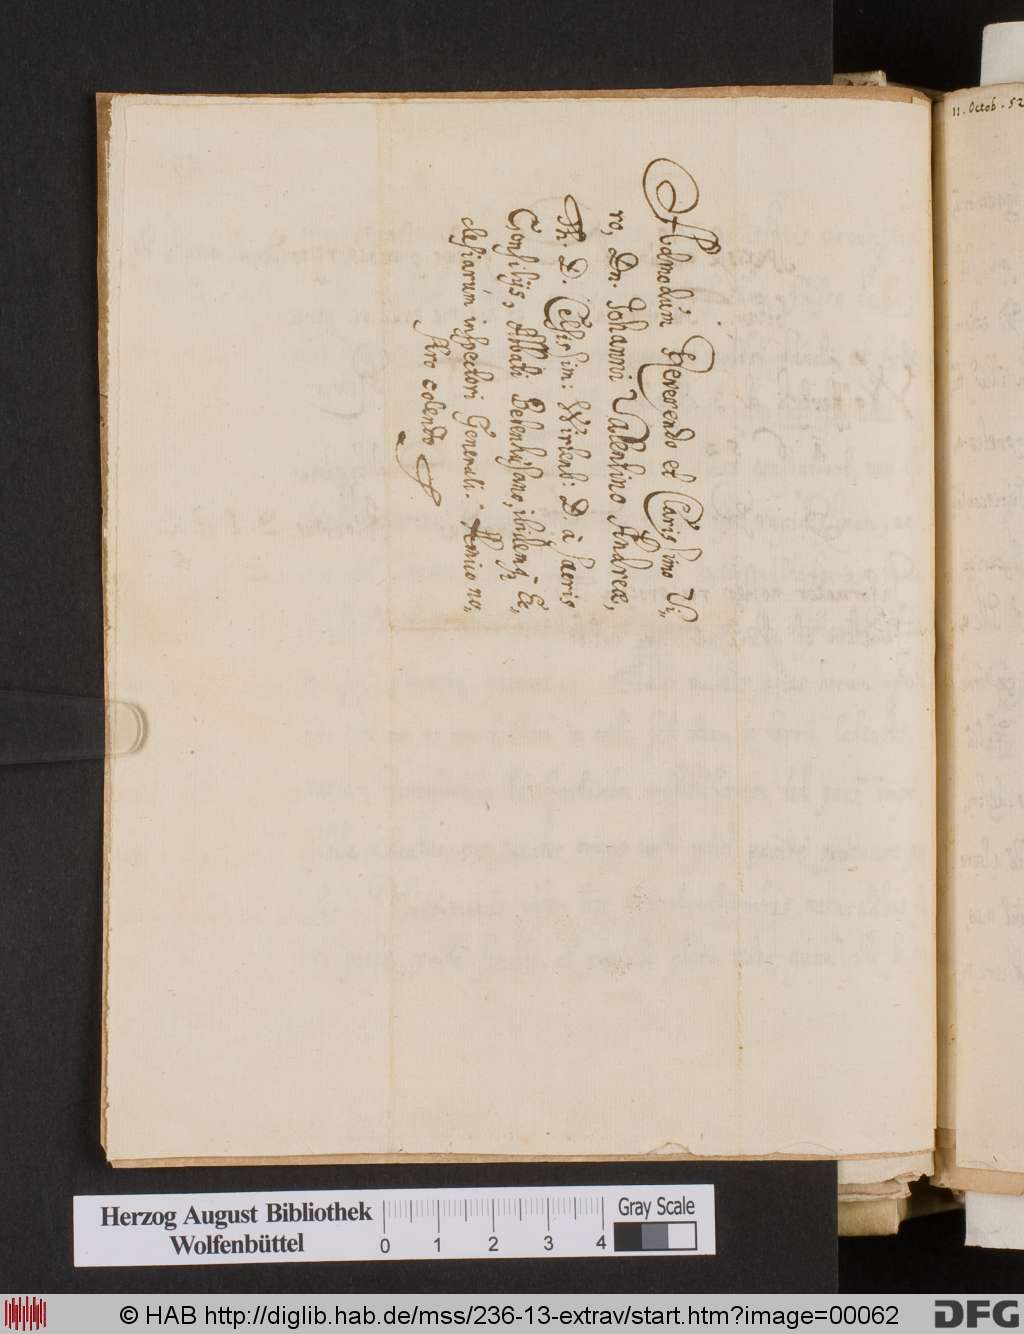 Admodum Reverendo et Claris simo Vi,
ro, Dn. Johanni Valentino Andreæ,
Th. D. Celsissim: Wirtenb: D. à sacris
Consilijs, Abbati Bebenhusano, ibidemq Ec,
clesiarum inspectori Generali. Amico no,
stro colendo
11. Octob. 52
Herzog August Bibliothek
Wolfenbüttel
0 1 2 3 4
Gray Scale
© HAB http://diglib.hab.de/mss/236-13-extrav/start.htm?image=00062
DFG